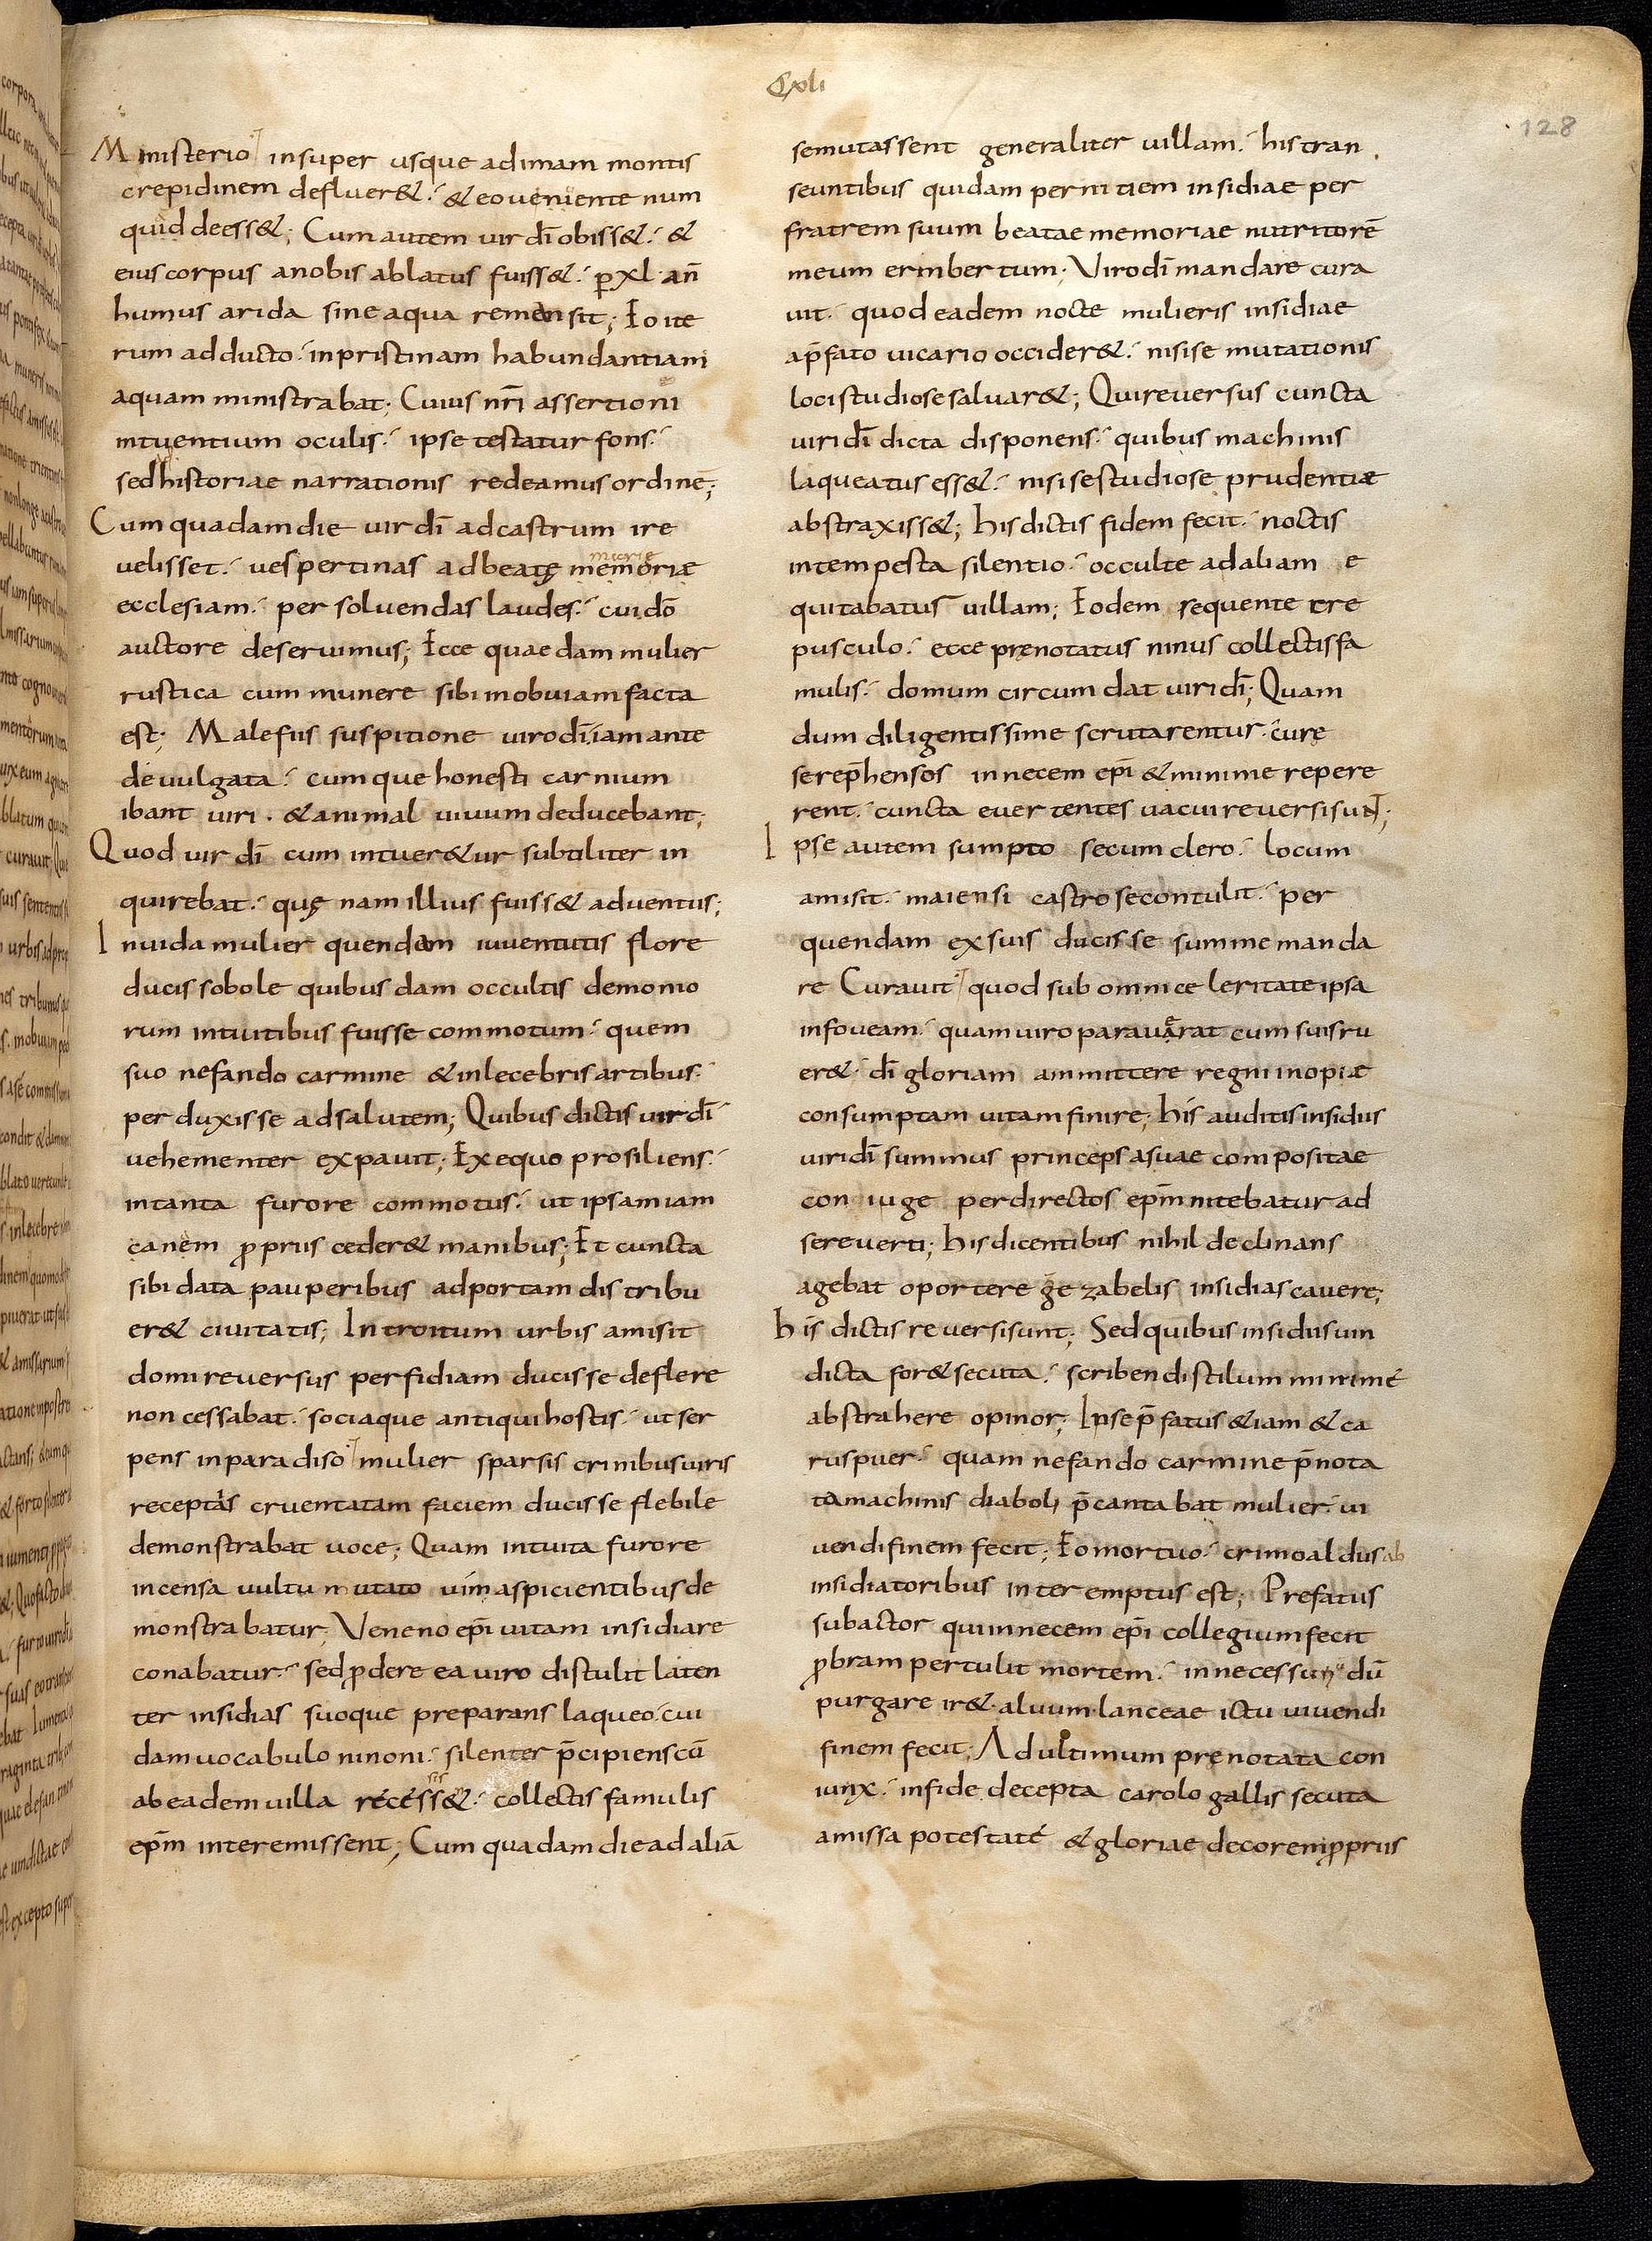 Cxli
128
Ministerio insuper usque ad imam montis
crepidinem defluer&. & eo veniente num
quid deess&; Cum autem vir dī obiss&. &
eius corpus a nobis ablatus fuiss&. p̱ xl. an̄
humus arida sine aqua remansit; Eo ite
rum adducto. in pristinam habundantiam
aquam ministrabat; Cuius nr̄i assertioni
intuentium oculis. ipse testatur fons.
sed historiae narrationis redeamus ordinē;
Cum quadam die vir dī ad castrum ire
velisset. vespertinas ad beatę memoriæ
ecclesiam. persolvendas laudes. cui dō
auctore deservimus; Ecce quaedam mulier
rustica cum munere sibi in obviam facta
est; Malefiis suspitione viro dī iam ante
devulgata. cumque honesti carnium
ibant viri. & animal vivum deducebant;
Quod vir dī cum intuer&ur subtiliter in
quirebat. quę nam illius fuiss& adventus;
Invida mulier quendam iuventutis flore
ducis sobole quibusdam occultis demonio
rum intuitibus fuisse commotum. quem
suo nefando carmine & inlecebris artibus.
perduxisse ad salutem; Quibus dictis vir dī
vehementer expavit; Ex equo prosiliens.
in tanta furore commotus. ut ipsam iam
canem p̱propriis ceder& manibus; Et cuncta
sibi data pauperibus ad portam distribu
er& civitatis; Introitum urbis amisit
domi reversus perfidiam ducisse deflere
non cessabat. sociaque antiqui hostis. ut ser
pens in paradiso mulier sparsis crinibus viris
receptis cruentatam faciem ducisse flebile
demonstrabat voce; Quam intuita furore
incensa vultu mutato vim aspicientibus de
monstrabatur; Veneno ep̄i vitam insidiare
conabatur. sed p̱dere ea viro distulit laten
ter insidias suoque preparans laqueo. cui
dam vocabulo ninoni. silenter p̄cipiens cū
ab eadem villa recess&. collectis famulis
ep̄m interemissent; Cum quadam die ad aliā
se mutassent generaliter villam. his tran
seuntibus quidam pernitiem insidiae per
fratrem suum beatae memoriae nutritorē
meum erimbertum; Viro dī mandare cura
vit. quod eadem nocte mulieris insidiae
a p̄fato vicario occider&. nisi se mutationis
loci studiose salvar&; Qui reversus cuncta
viri dī dicta disponens. quibus machinis
laqueatus ess&. nisi se studiose prudentiæ
abstraxiss&; his dictis fidem fecit. noctis
intempesta silentio. occulte ad aliam e
quitabatus villam; Eodem sequente cre
pusculo. ecce pręnotatus ninus collectis fa
mulis. domum circumdat viri dī; Quam
dum diligentissime scrutarentur. cure
se rep̄hensos in necem ep̄i & minime repere
rent. cuncta evertentes vacui reversi sunt;
Ipse autem sumpto secum clero. locum
amisit. maiensi castro se contulit. per
quendam ex suis ducisse summe manda
re Curavit quod sub omni celeritate ipsa
in foveam. quam viro paraverat cum suis ru
er&. dī gloriam ammittere regni inopiæ
consumptam vitam finire; his auditis insidiis
viri dī summus princeps a suae compositae
coniuge perdirectos ep̄m nitebatur ad
se reverti; his dicentibus nihil declinans
agebat oportere gezabelis insidias cavere;
his dictis reversi sunt; Sed quibus insidiis vin
dicta for& secuta. scribendi stilum minime
abstrahere opinor; Ipse p̄fatus &iam & ca
rus puer. quam nefando carmine p̄nota
ta machinis diaboli p̄cantabat mulier. vi
vendi finem fecit; Eo mortuo. crimoaldus ab
insidiatoribus interemptus est; Prefatus
subactor qui in necem ep̄i collegium fecit
p̱bram pertulit mortem. in necessum dū
purgare ir& alvum. lanceae ictu vivendi
finem fecit; Ad ultimum pręnotata con
iunx. in fide decepta carolo gallis secuta
amissa potestate & gloriae decorem p̱priis